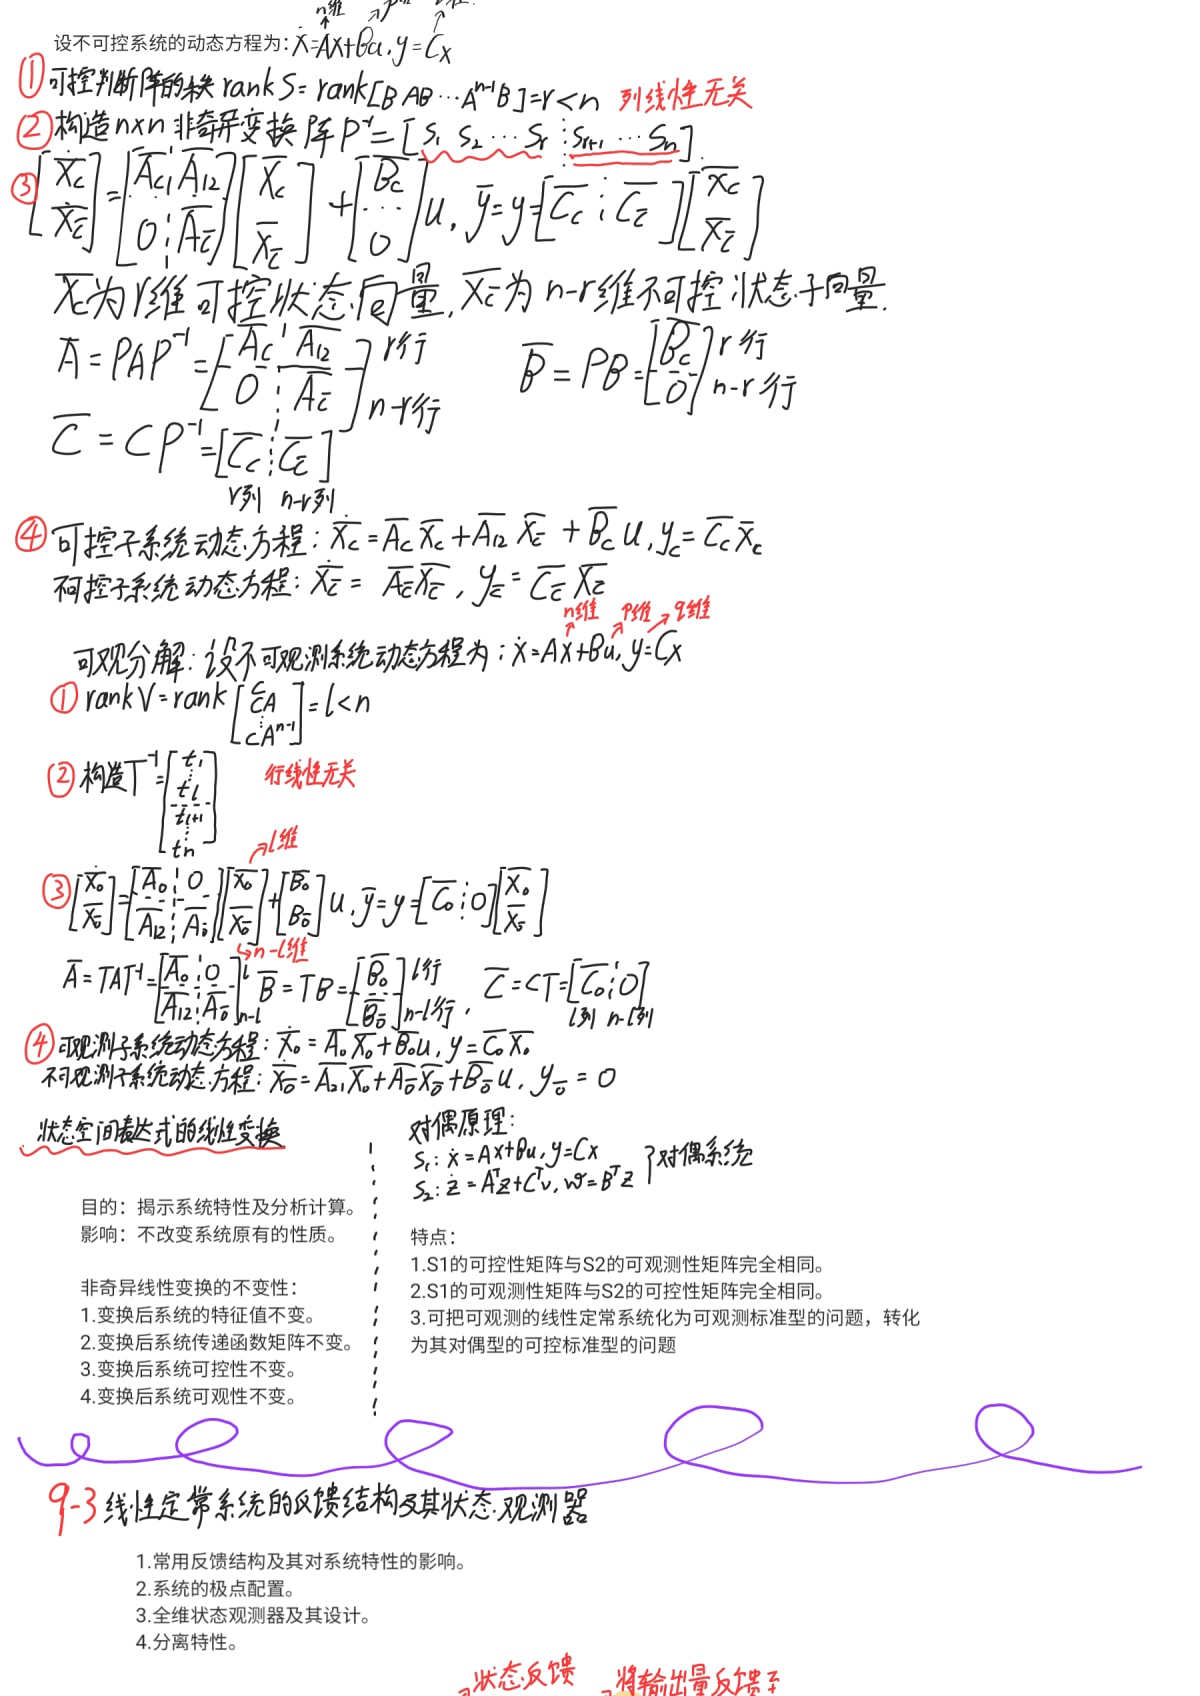 n维
设不可控系统的动态方程为: ẋ=Ax+Bu, y=Cx
① 可控判断阵的秩 rank S = rank[B AB ⋯ Aⁿ⁻¹B]=r<n 列线性无关
② 构造n×n 非奇异变换阵 P⁻¹=[S₁ S₂ ⋯ Sr ⋮ Sr+1 ⋯ Sn].
③ [ẋ̄c; ẋ̄c̄]=[Āc Ā₁₂; 0 Āc̄][x̄c; x̄c̄]+[B̄c; ⋯; 0]u, ȳ=y=[C̄c ⋮ C̄c̄][x̄c; x̄c̄]
x̄c为r维可控状态向量, x̄c̄为 n-r维不可控状态子向量.
Ā=PAP⁻¹=[Āc Ā₁₂; 0 Āc̄] r行 n-r行 B̄=PB=[B̄c; 0] r行 n-r行
C̄=CP⁻¹=[C̄c ⋮ C̄c̄]
r列 n-r列
④ 可控子系统动态方程: ẋ̄c=Āc x̄c+Ā₁₂ x̄c̄+B̄c u, yc=C̄c x̄c
不可控子系统动态方程: ẋ̄c̄=Āc̄ x̄c̄, yc̄=C̄c̄ x̄c̄
n维 p维 q维
可观分解: 设不可观测系统动态方程为: ẋ=Ax+Bu, y=Cx
① rank V=rank[C; CA; ⋮; CAⁿ⁻¹]=l<n
② 构造T⁻¹=[t₁; ⋮; tl; tl+1; ⋮; tn] 行线性无关
l维
③ [ẋ̄o; x̄ō]=[Āo 0; Ā₁₂ Āō][x̄o; x̄ō]+[B̄o; B̄ō]u, ȳ=y=[C̄o ⋮ 0][x̄o; x̄ō]
n-l维
Ā=TAT⁻¹=[Āo 0; Ā₁₂ Āō] l n-l B̄=TB=[B̄o; B̄ō] l行 n-l行, C̄=CT=[C̄o ⋮ 0]
l列 n-l列
④ 可观测子系统动态方程: ẋ̄o=Āo x̄o+B̄o u, y=C̄o x̄o
不可观测子系统动态方程: ẋ̄ō=Ā₂₁ x̄o+Āō x̄ō+B̄ō u, yō=0
状态空间表达式的线性变换
目的：揭示系统特性及分析计算。
影响：不改变系统原有的性质。
非奇异线性变换的不变性：
1.变换后系统的特征值不变。
2.变换后系统传递函数矩阵不变。
3.变换后系统可控性不变。
4.变换后系统可观性不变。
对偶原理:
S₁: ẋ=Ax+Bu, y=Cx
S₂: ż=Aᵀz+Cᵀv, w=Bᵀz
对偶系统
特点：
1.S1的可控性矩阵与S2的可观测性矩阵完全相同。
2.S1的可观测性矩阵与S2的可控性矩阵完全相同。
3.可把可观测的线性定常系统化为可观测标准型的问题，转化
为其对偶型的可控标准型的问题
9-3 线性定常系统的反馈结构及其状态观测器
1.常用反馈结构及其对系统特性的影响。
2.系统的极点配置。
3.全维状态观测器及其设计。
4.分离特性。
状态反馈 将输出量反馈至